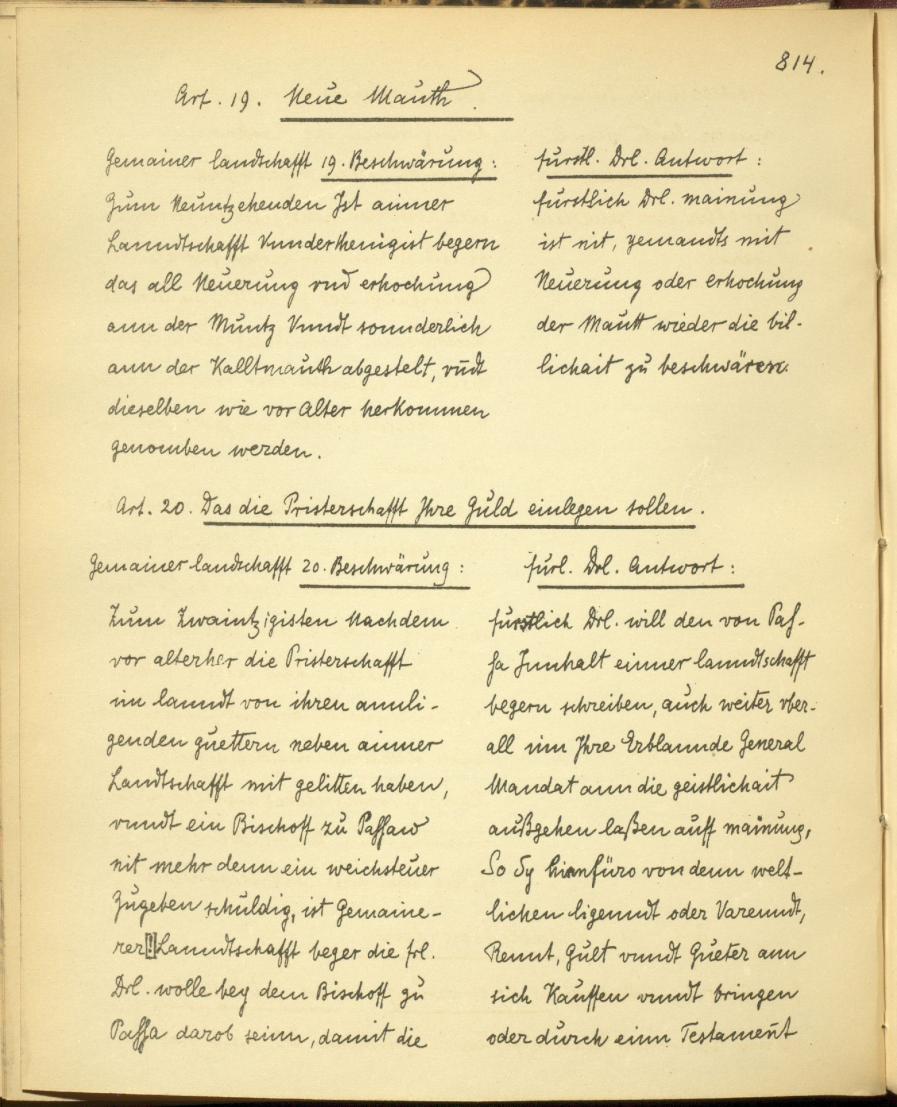 814.
Art. 19. Neue Mauth.
Gemainer landschafft 19. Beschwärung:
Zum Neuntzehenden Ist ainner
Lanndtschafft Vnderthenigist begern
das all Neuerung vnd erhochung
ann der Muntz Vnndt sonnderlich
ann der Kalltmauth abgestelt, vndt
dieselben wie vor Alter herkommen
genomben werden.
fürstl. Drl. Antwort:
fürstlich Drl. mainung
ist nit, yemandts mit
Neuerung oder erhochung
der Mautt wieder die bil-
lichait zu beschwären.
Art. 20. Das die Pristerschafft Jhre Guld einlegen sollen.
Gemainer landschafft 20. Beschwärung:
Zum Zwaintzigisten Nachdem
vor alterher die Pristerschafft
im lanndt von ihren annli-
genden guettern neben ainner
Landtschafft mit gelitten haben,
vnndt ein Bischoff zu Passaw
nit mehr denn ein weichsteuer
Zugeben schuldig, ist Gemaine-
rer [!] Lanndtschafft beger die frl.
Drl. wolle bey dem Bischoff zu
Passa darob seinn, damit die
fürl. Drl. Antwort:
fürstlich Drl. will den von Pas-
sa Innhalt einner lanndtschafft
begern schreiben, auch weiter vber-
all inn Jhre Erblannde General
Mandat ann die geistlichait
außgehen laßen auff mainung,
So Sy hinnfüro von denn welt-
lichen ligenndt oder Varenndt,
Rennt, Gult vnndt Gueter ann
sich Kauffen vnndt bringen
oder durch einn Testament